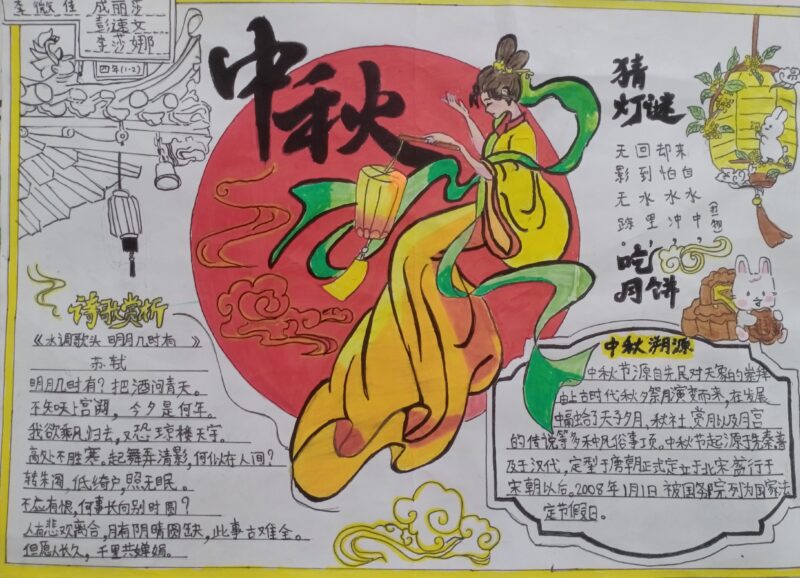 李微佳 成丽莎
彭速文
李莎娜
四年(1-2)
中秋
猜
灯谜
无回却来
影到怕自
无水水水
踪里冲中
吃
月饼
诗歌赏析
《水调歌头 明月几时有》
苏轼
明月几时有？把酒问青天。
不知天上宫阙，今夕是何年。
我欲乘风归去，又恐琼楼玉宇。
高处不胜寒。起舞弄清影，何似在人间？
转朱阁，低绮户，照无眠。
不应有恨，何事长向别时圆？
人有悲欢离合，月有阴晴圆缺，此事古难全。
但愿人长久，千里共婵娟。
中秋溯源
中秋节源自先民对天象的崇拜
由上古时代秋夕祭月演变而来，在发展
中了天子夕月，秋社，赏月以及月宫
的传说等多种风俗事项。中秋节起源于先秦普
及于汉代，定型于唐朝正式定立于北宋盛行于
宋朝以后。2008年1月1日被国务院列为国家法
定节假日。